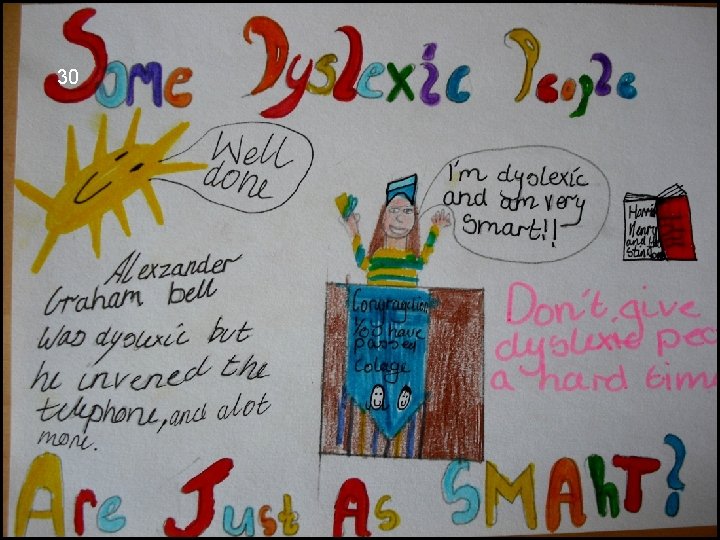 30
Some Dyslexic People
Well
done
I'm dyslexic
and am very
Smart!!
Alexzander
Graham bell
Was dyslexic but
he invened the
telephone, and alot
more.
You have
passed
Colage
Don't give
dyslexic peo
a hard time
Are Just As SMARt?